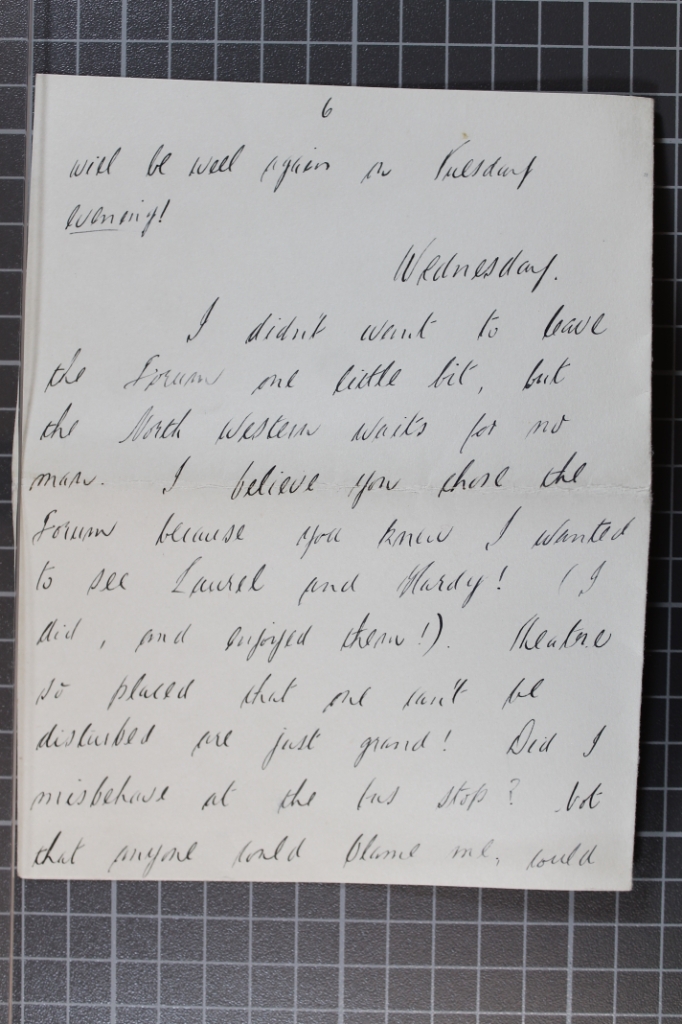 6
will be well again on Tuesday
evening!
Wednesday.
I didn't want to leave
the Forum one little bit, but
the North Western waits for no
man. I believe you chose the
Forum because you knew I wanted
to see Laurel and Hardy! (I
did, and enjoyed them!). Theatre
so placed that one can't be
disturbed are just grand! Did I
misbehave at the bus stop? Not
that anyone could blame me, could